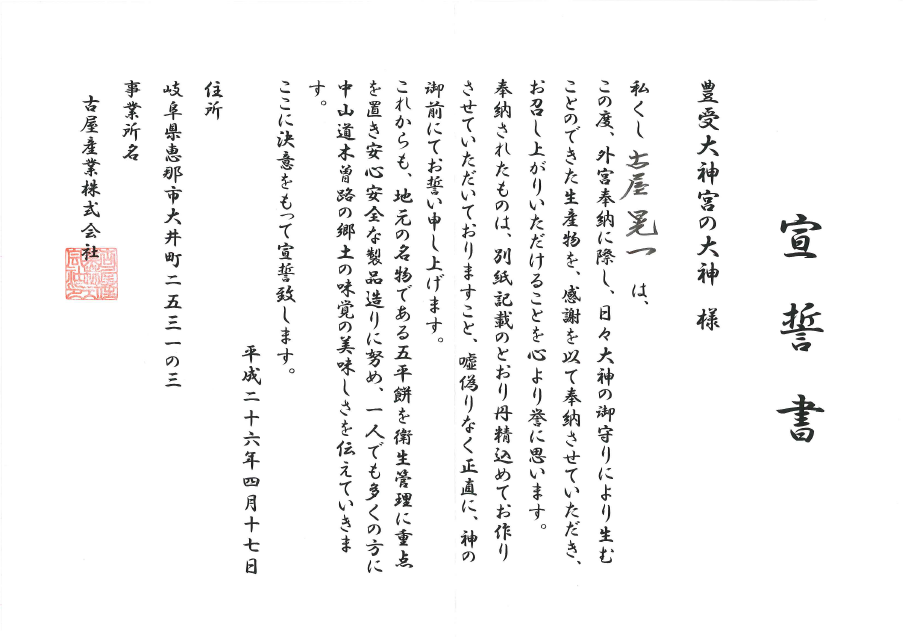 宣誓書
豊受大神宮の大神 様
私くし 古屋 晃一 は、
この度、外宮奉納に際し、日々大神の御守りにより生む
ことのできた生産物を、感謝を以て奉納させていただき、
お召し上がりいただけることを心より誉に思います。
奉納されたものは、別紙記載のとおり丹精込めてお作り
させていただいておりますこと、嘘偽りなく正直に、神の
御前にてお誓い申し上げます。
これからも、地元の名物である五平餅を衛生管理に重点
を置き安心安全な製品造りに努め、一人でも多くの方に
中山道木曽路の郷土の味覚の美味しさを伝えていきま
す。
ここに決意をもって宣誓致します。
平成二十六年四月十七日
住所
岐阜県恵那市大井町二五三一の三
事業所名
古屋産業株式会社